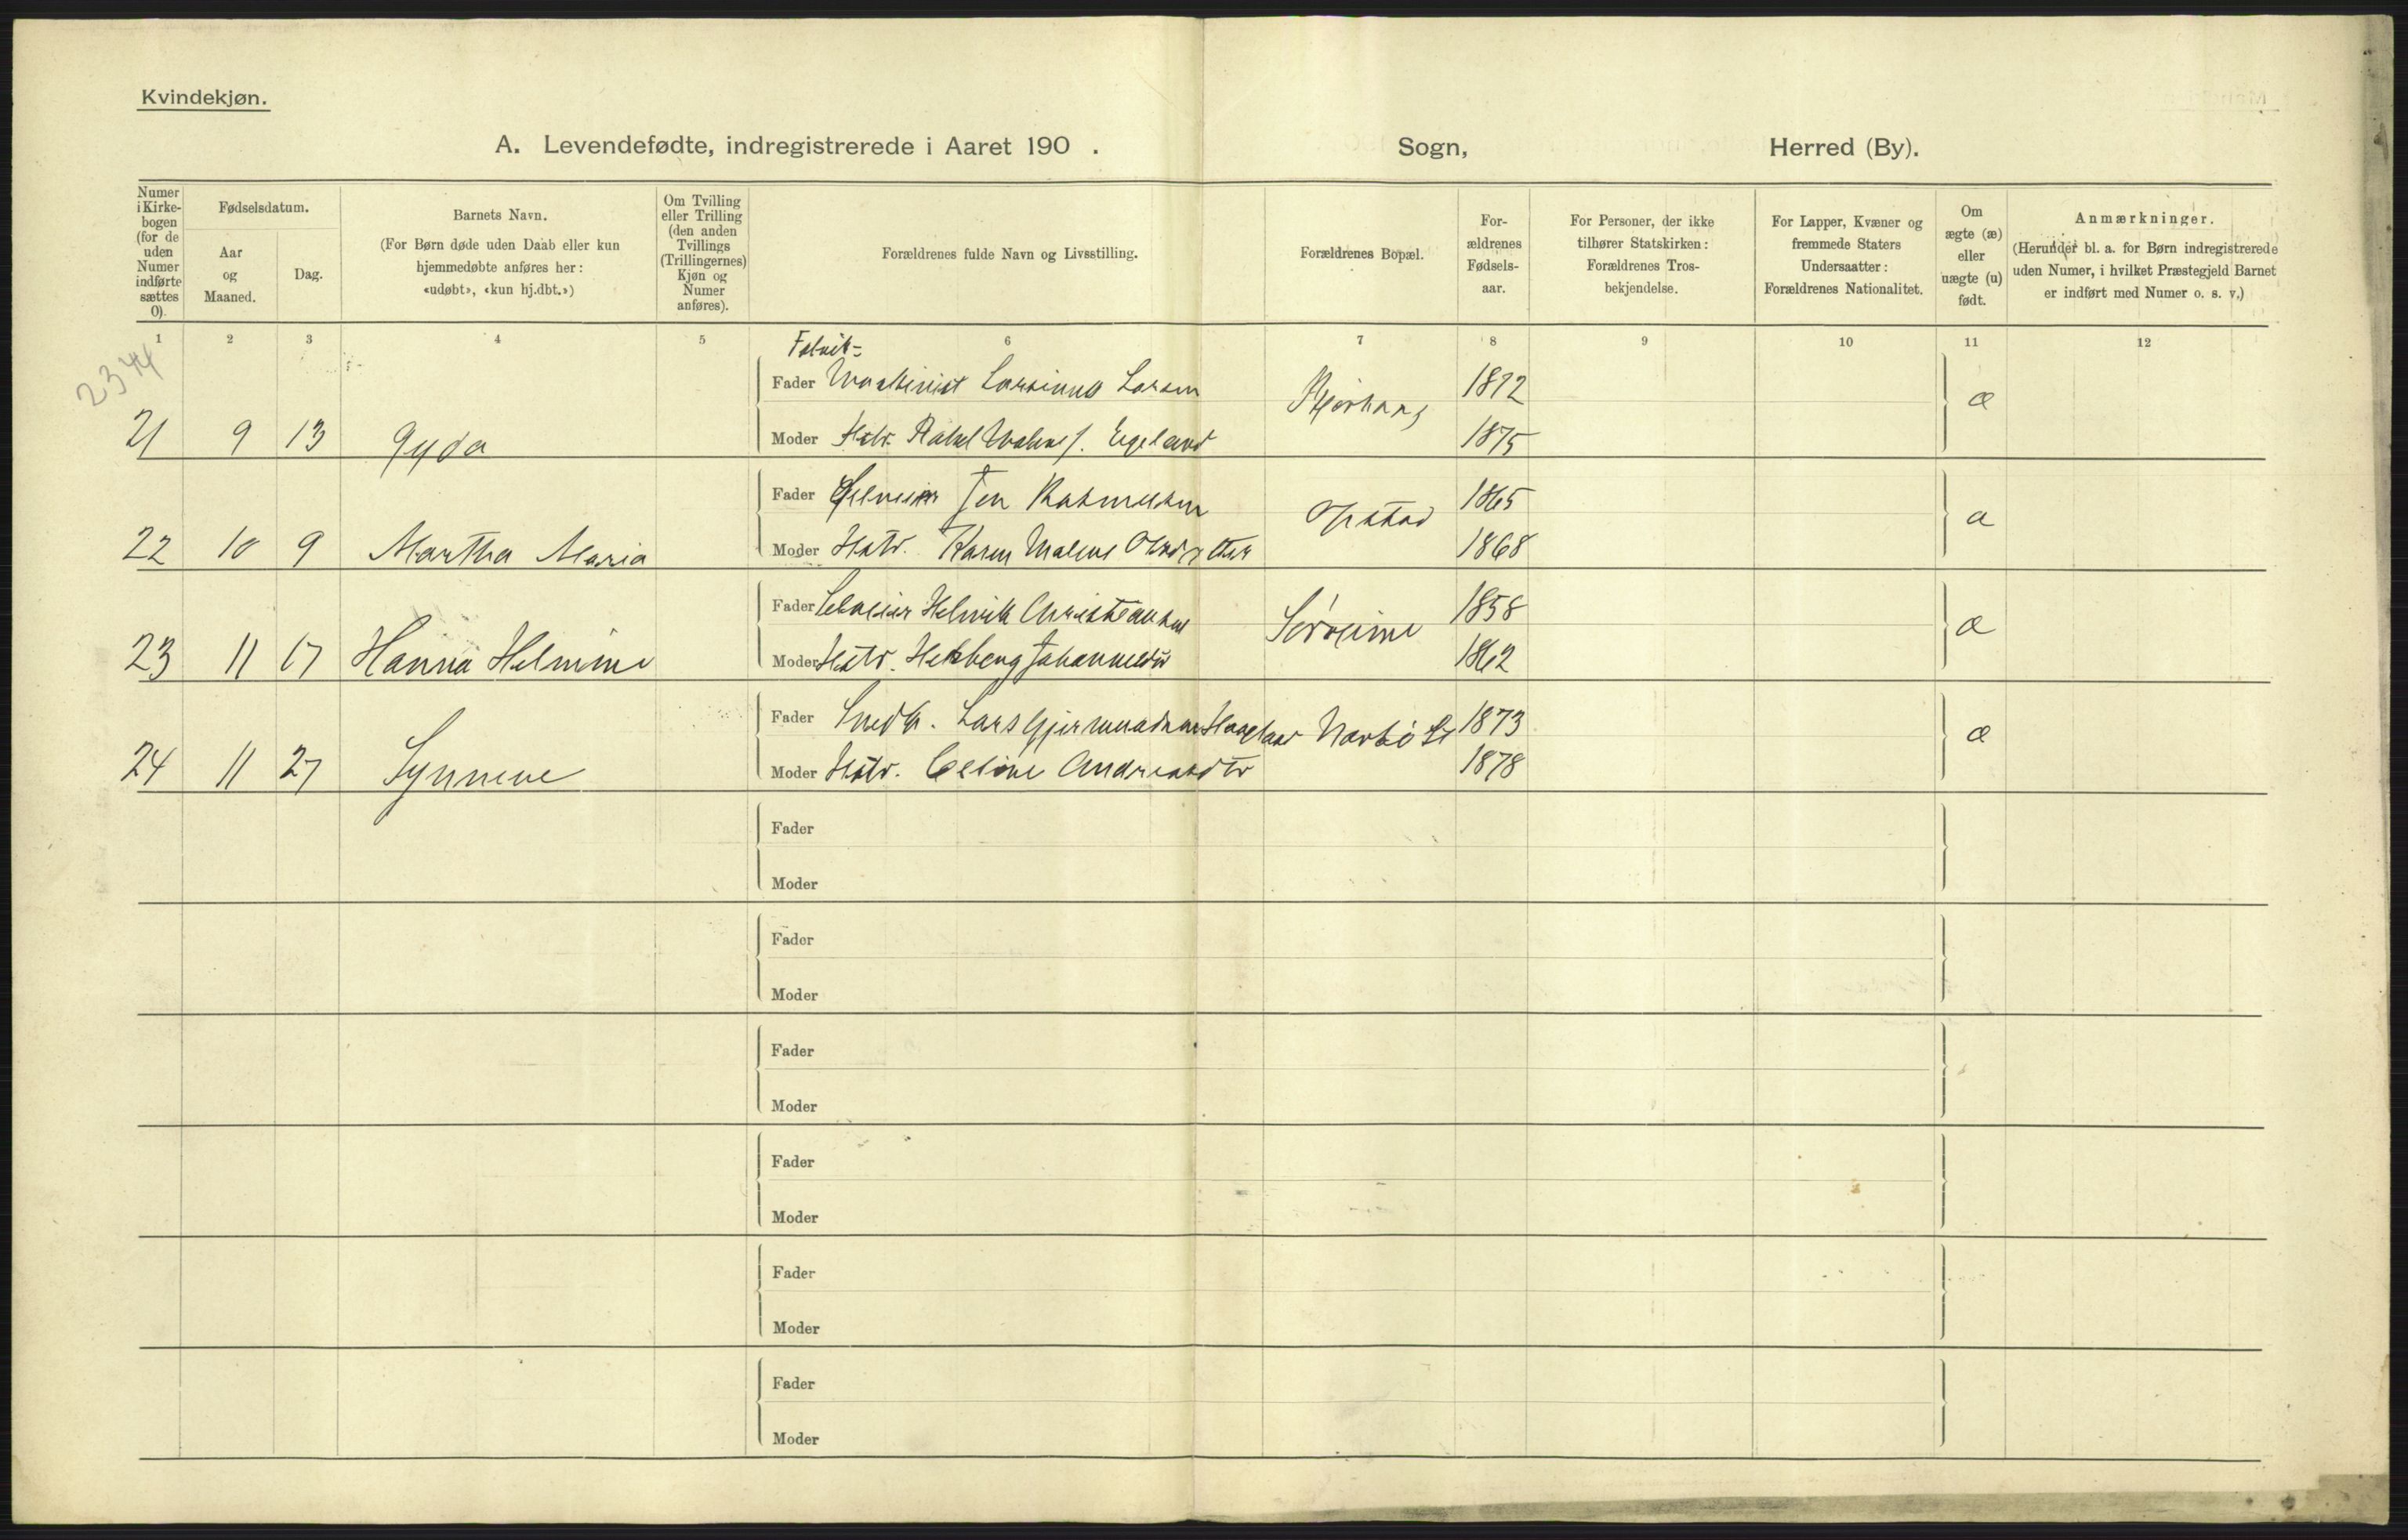 Kvindekjøn.
A. Levendefødte, indregistrerede i Aaret 190 . Sogn, Herred (By).
Numer i Kirkebogen (for de uden Numer indførte sættes 0).
Fødselsdatum.
Aar og Maaned.
Dag.
Barnets Navn.
(For Børn døde uden Daab eller kun hjemmedøbte anføres her: «udøbt», «kun hj.dbt.»)
Om Tvilling eller Trilling (den anden Tvillings (Trillingernes) Kjøn og Numer anføres).
Forældrenes fulde Navn og Livsstilling.
Forældrenes Bopæl.
Forældrenes Fødselsaar.
For Personer, der ikke tilhører Statskirken: Forældrenes Trosbekjendelse.
For Lapper, Kvæner og fremmede Staters Undersaatter: Forældrenes Nationalitet.
Om ægte (æ) eller uægte (u) født.
Anmærkninger.
(Herunder bl. a. for Børn indregistrerede uden Numer, i hvilket Præstegjeld Barnet er indført med Numer o. s. v.)
1 2 3 4 5 6 7 8 9 10 11 12
2344
Fabrik-
Fader Maskinist Larsinus Larsen 1872 æ
21 9 13 Gyda Moder Hstr. Rakel Malene f. Egeland 1875
Fader Selveier Jon Rasmussen Opstad 1865 æ
22 10 9 Martha Maria Moder Hstr. Karen Malene 1868
Fader Selveier Helmik Christiansen 1858 æ
23 11 17 Hanna Helmine Moder Hstr. Johannesdtr 1862
Fader Snedk. Lars Gjermundsen Haugland Nærbö St 1873 æ
24 11 27 Synneve Moder Hstr. Celine Andreasdtr 1878
Fader
Moder
Fader
Moder
Fader
Moder
Fader
Moder
Fader
Moder
Fader
Moder